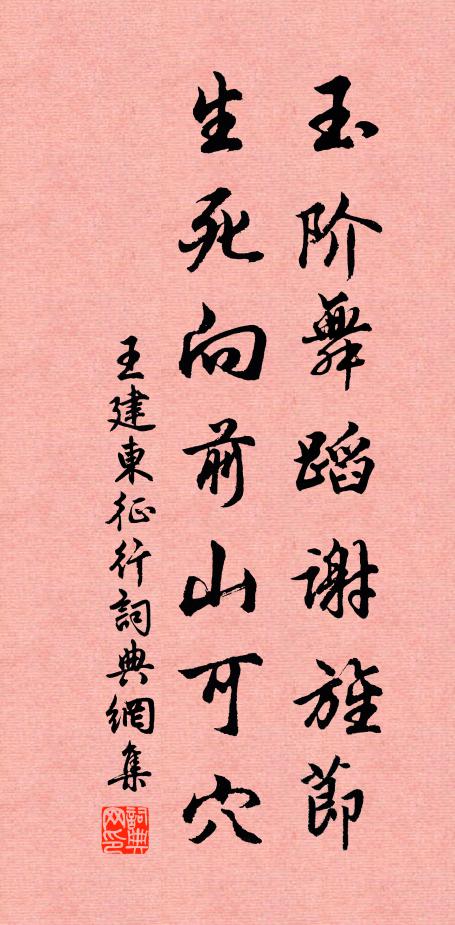 玉阶舞蹈谢旌节
生死向前山可穴
王建東征行詞典網集
詞典网印